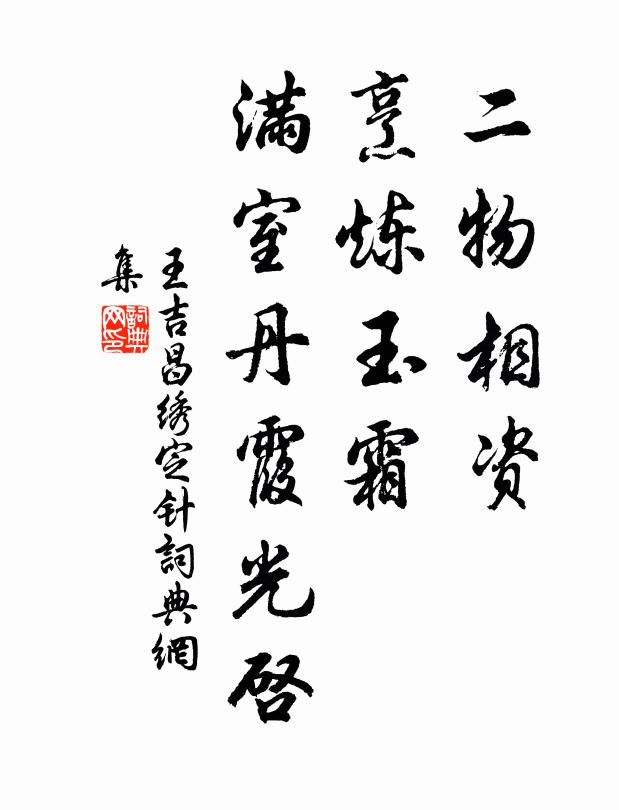 二物相资
烹炼玉霜
满室丹霞光启
王吉昌绣定针詞典網
集
詞典网印